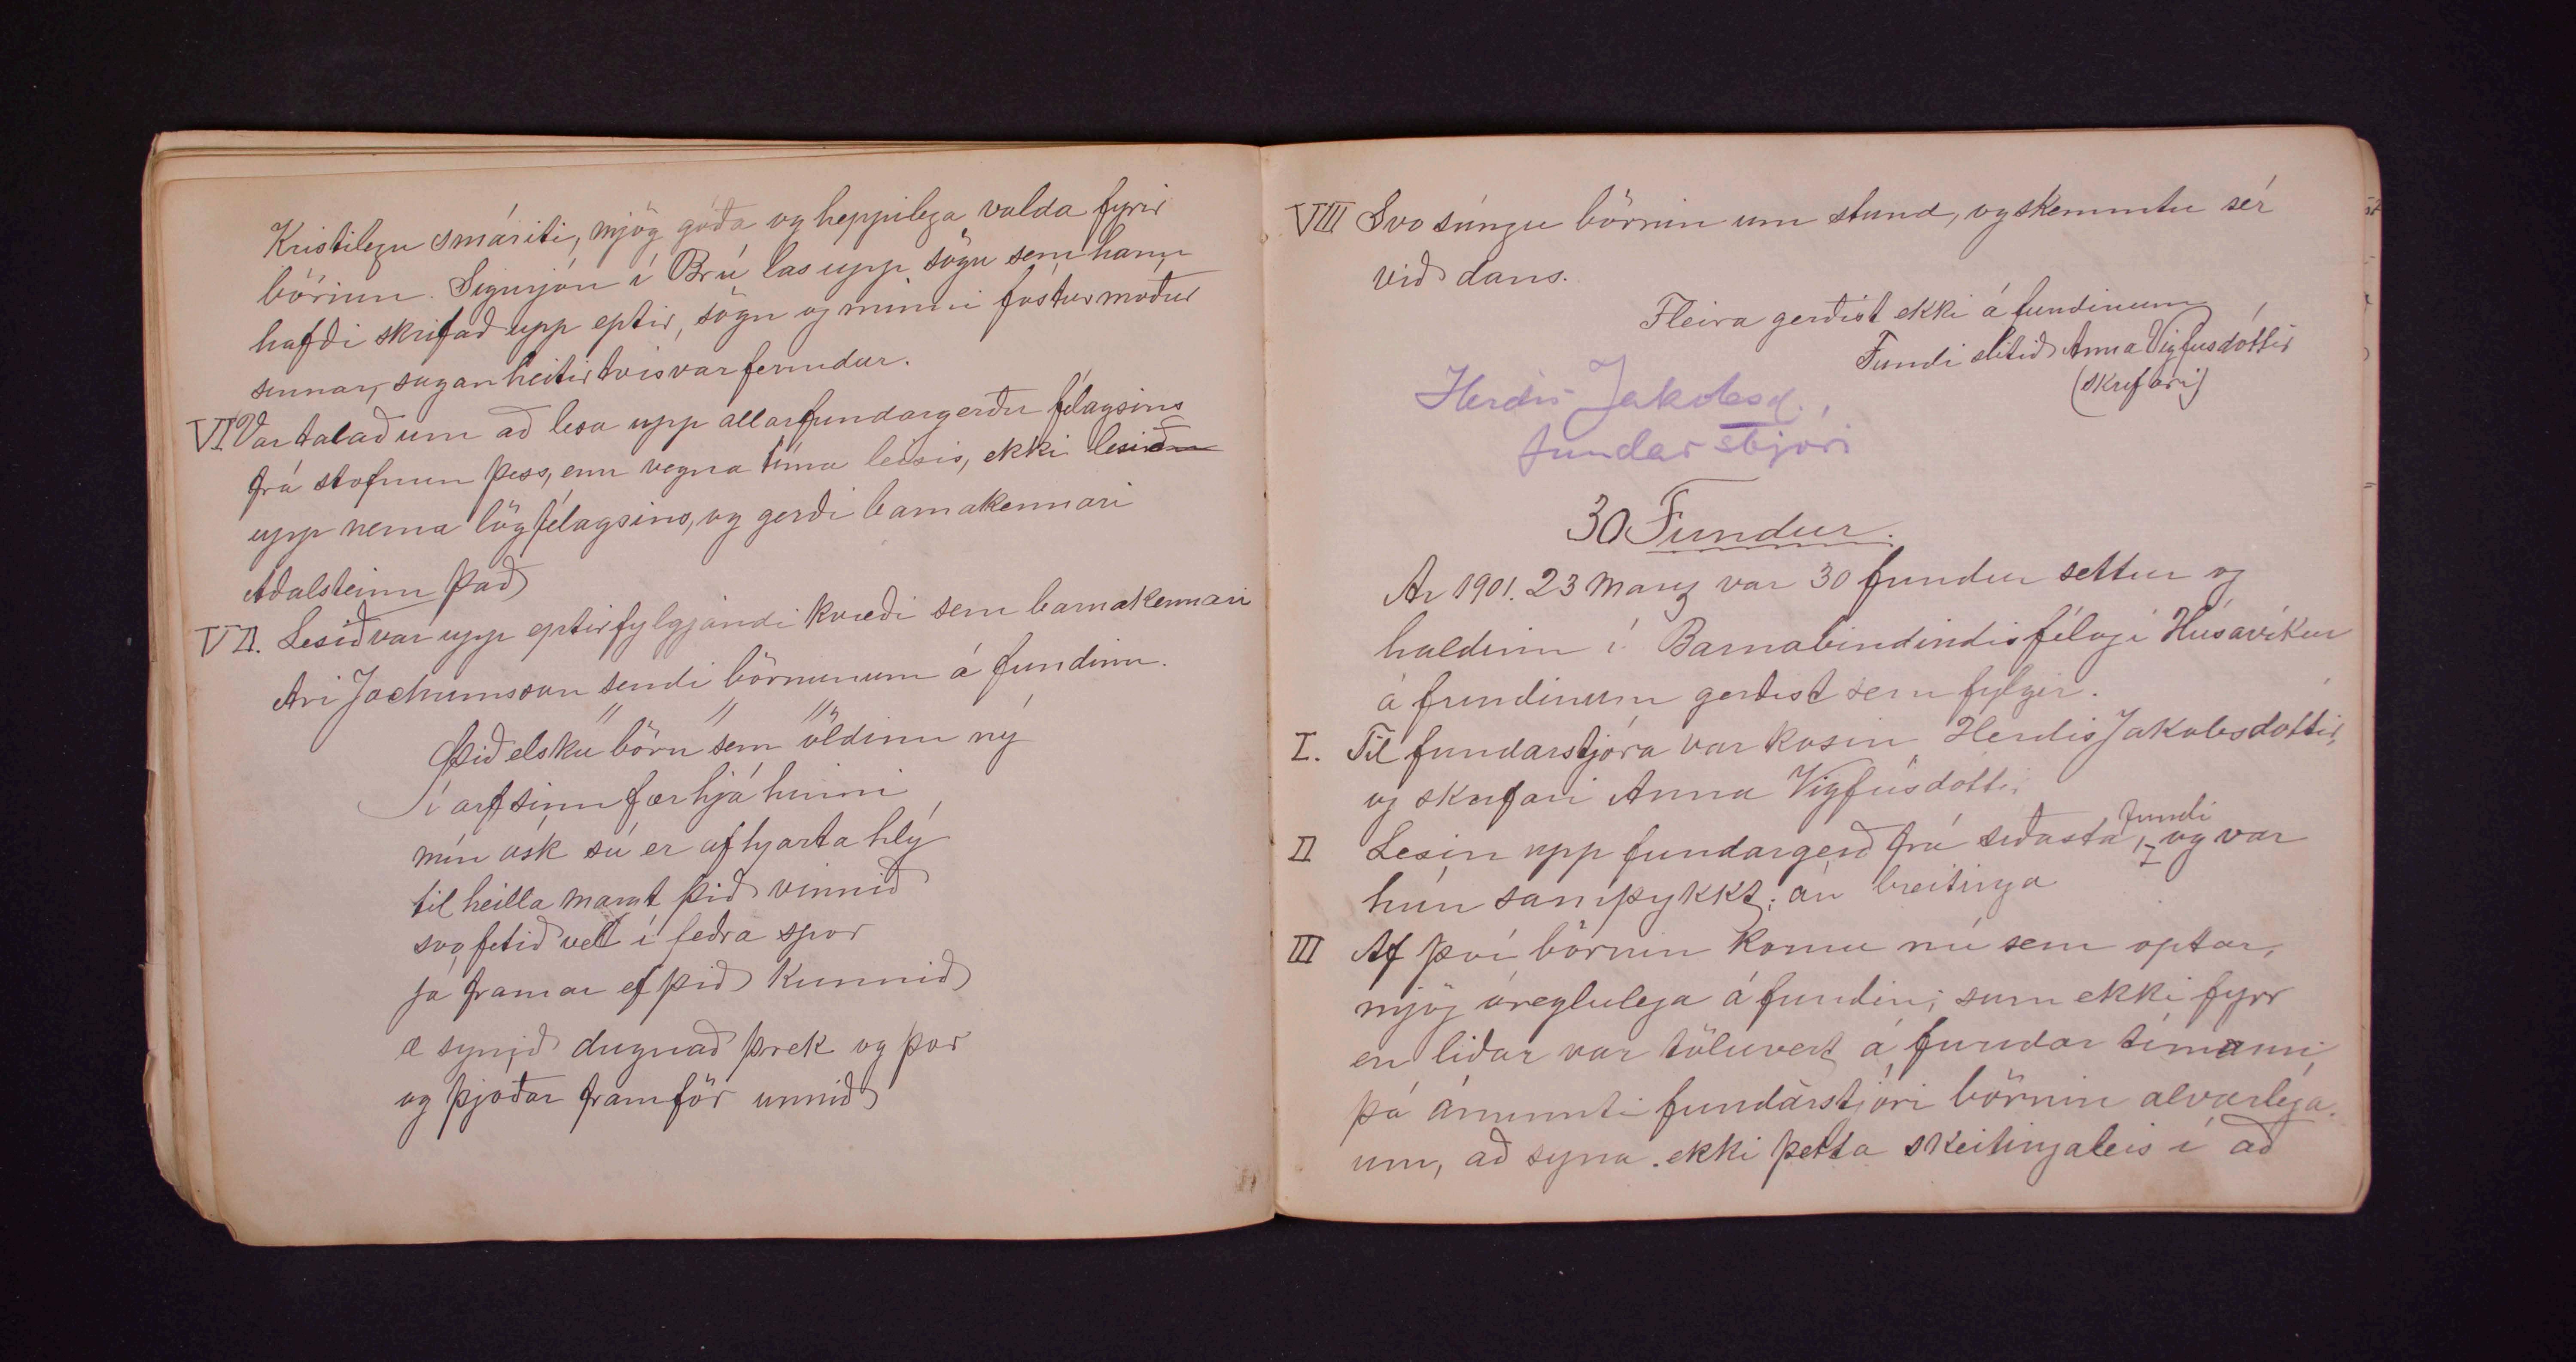 Kristilegu smáriti, mjög góða og heppilega valda fyrir
börinn. Sigurjón í Brú las upp sögu sem hann
hafði skrifað upp eptir, sögn og minni fósturmoður
sinnar, sagan heitir tvisvarfermdur.
VI. Var talað um að lesa upp allarfundargerðir félagsins
frá stofnun þess, enn vegna tíma leisis, ekki lesið
upp nema lög félagsins, og gerði barnakennari
Aðalsteinn það
VII. Lesið var upp eptirfylgjandi kvæði sem barnakennari
Ari Jochumsson sendi börnunum á fundinn.
Þið elsku börn sem öldinn ný
í arf sinn fær hjá hinni
mín ósk sú er af hjarta hlý
til heilla margt þið vinnið
svo fetið vell í feðra spor
já framar ef þið kunnið
æ synið dugnað þrek og þor
og þjóðar framför unnið
VIII Svo súngu börnin um stund, og skemmtu sér
við dans.
Fleira gerðist ekki á fundinum
Fundi slitið Anna Vigfusdóttir
(skrifari)
Herdis Jakobsd.,
fundarstjóri
30 Fundur.
Ar 1901. 23 Marz var 30 fundur settur og
haldinn í Barnabindindisfélagi Húsavíkur
á fundinum gerðist sem fylgir.
I. Til fundarstjóra var kosin Herdis Jakobsdottir,
og skrifari Anna Vigfúsdottir
II Lesin upp fundargerð frá siðasta fundi, og var
hún samþykkt; án breitinga
III Af því börnin komu nú sem optar,
mjög óreglulega á fundin; sum ekki fyrr
en liðar var töluvert á fundar tímann;
þá ámynnti fundarstjóri börnin alvarlega
um, að syna ekki þetta skeitingaleis í að